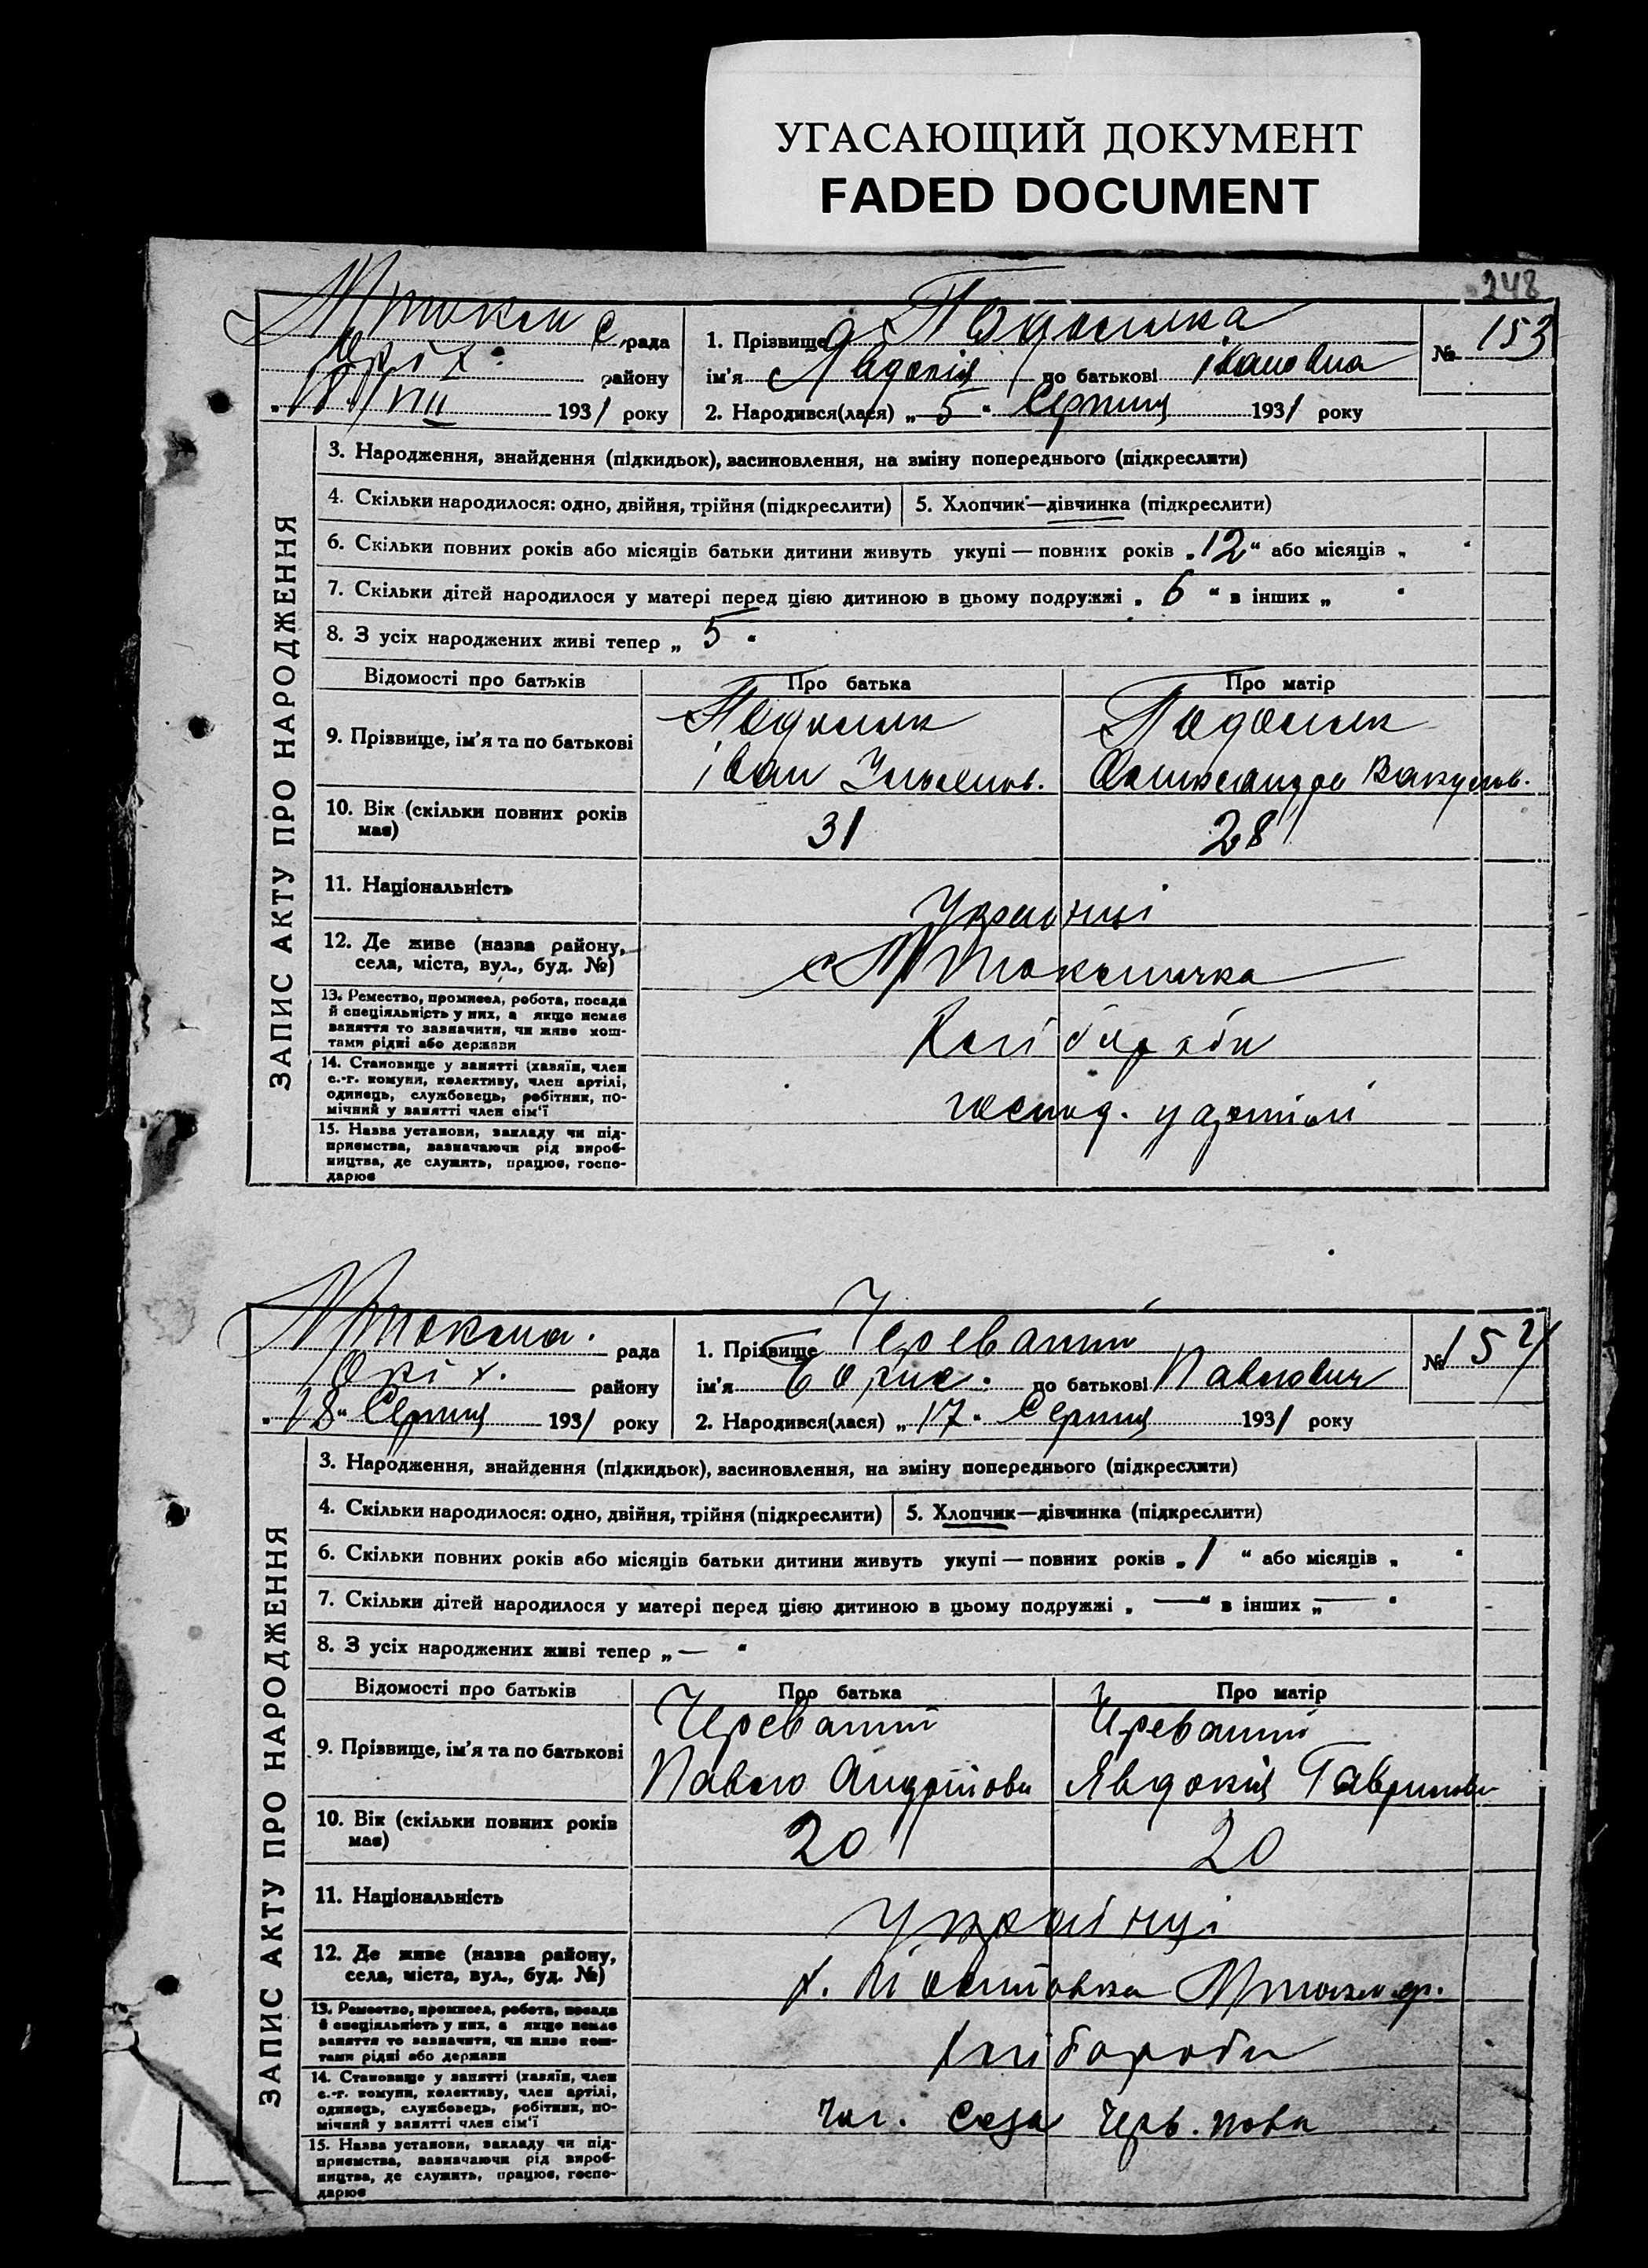 УГАСАЮЩИЙ ДОКУМЕНТ
FADED DOCUMENT
248
рада
району
18/VIII 1931 року
1. Прізвище
ім'я Явдокія по батькові івановна
2. Народився(лася) „5“ Серпня 1931 року
№ 153
ЗАПИС АКТУ ПРО НАРОДЖЕННЯ
3. Народження, знайдення (підкидьок), васиновлення, на зміну попереднього (підкреслити)
4. Скільки народилося: одно, двійня, трійня (підкреслити)
5. Хлопчик—дівчинка (підкреслити)
6. Скільки повних років або місяців батьки дитини живуть укупі — повних років „12“ або місяців „ “
7. Скільки дітей народилося у матері перед цією дитиною в цьому подружжі „6“ в інших „ “
8. З усіх народжених живі тепер „5“
Відомості про батьків
Про батька
Про матір
9. Прізвище, ім'я та по батькові
іван
Олександра Вакулов.
10. Вік (скільки повних років має)
31
28
11. Національність
Українці
12. Де живе (назва району, села, міста, вул., буд. №)
13. Ремество, промисел, робота, посада й спеціяльність у них, а якщо немає заняття то зазначити, чи живе коштами рідні або держави
Хлібороби
14. Становище у занятті (хазяїн, член с.-г. комуни, колективу, член артілі, одинець, службовець, робітник, помічний у занятті член сім'ї
господ. у артілі
15. Назва установи, закладу чи підприємства, зазначаючи рід виробництва, де служить, працює, господарює
рада
Оріх. району
„18“ Серпня 1931 року
1. Прізвище Череватий
ім'я Борис. по батькові Павлович
2. Народився(лася) „17“ Серпня 1931 року
№ 154
ЗАПИС АКТУ ПРО НАРОДЖЕННЯ
3. Народження, знайдення (підкидьок), васиновлення, на зміну попереднього (підкреслити)
4. Скільки народилося: одно, двійня, трійня (підкреслити)
5. Хлопчик—дівчинка (підкреслити)
6. Скільки повних років або місяців батьки дитини живуть укупі — повних років „1“ або місяців „ “
7. Скільки дітей народилося у матері перед цією дитиною в цьому подружжі „—“ в інших „—“
8. З усіх народжених живі тепер „—“
Відомості про батьків
Про батька
Про матір
9. Прізвище, ім'я та по батькові
Череватий
Павло Андрійови
Череватий
Явдокія Гаврилови
10. Вік (скільки повних років має)
20
20
11. Національність
Українці
12. Де живе (назва району, села, міста, вул., буд. №)
13. Ремество, промисел, робота, посада й спеціяльність у них, а якщо немає заняття то зазначити, чи живе коштами рідні або держави
Хлібороби
14. Становище у занятті (хазяїн, член с.-г. комуни, колективу, член артілі, одинець, службовець, робітник, помічний у занятті член сім'ї
15. Назва установи, закладу чи підприємства, зазначаючи рід виробництва, де служить, працює, господарює